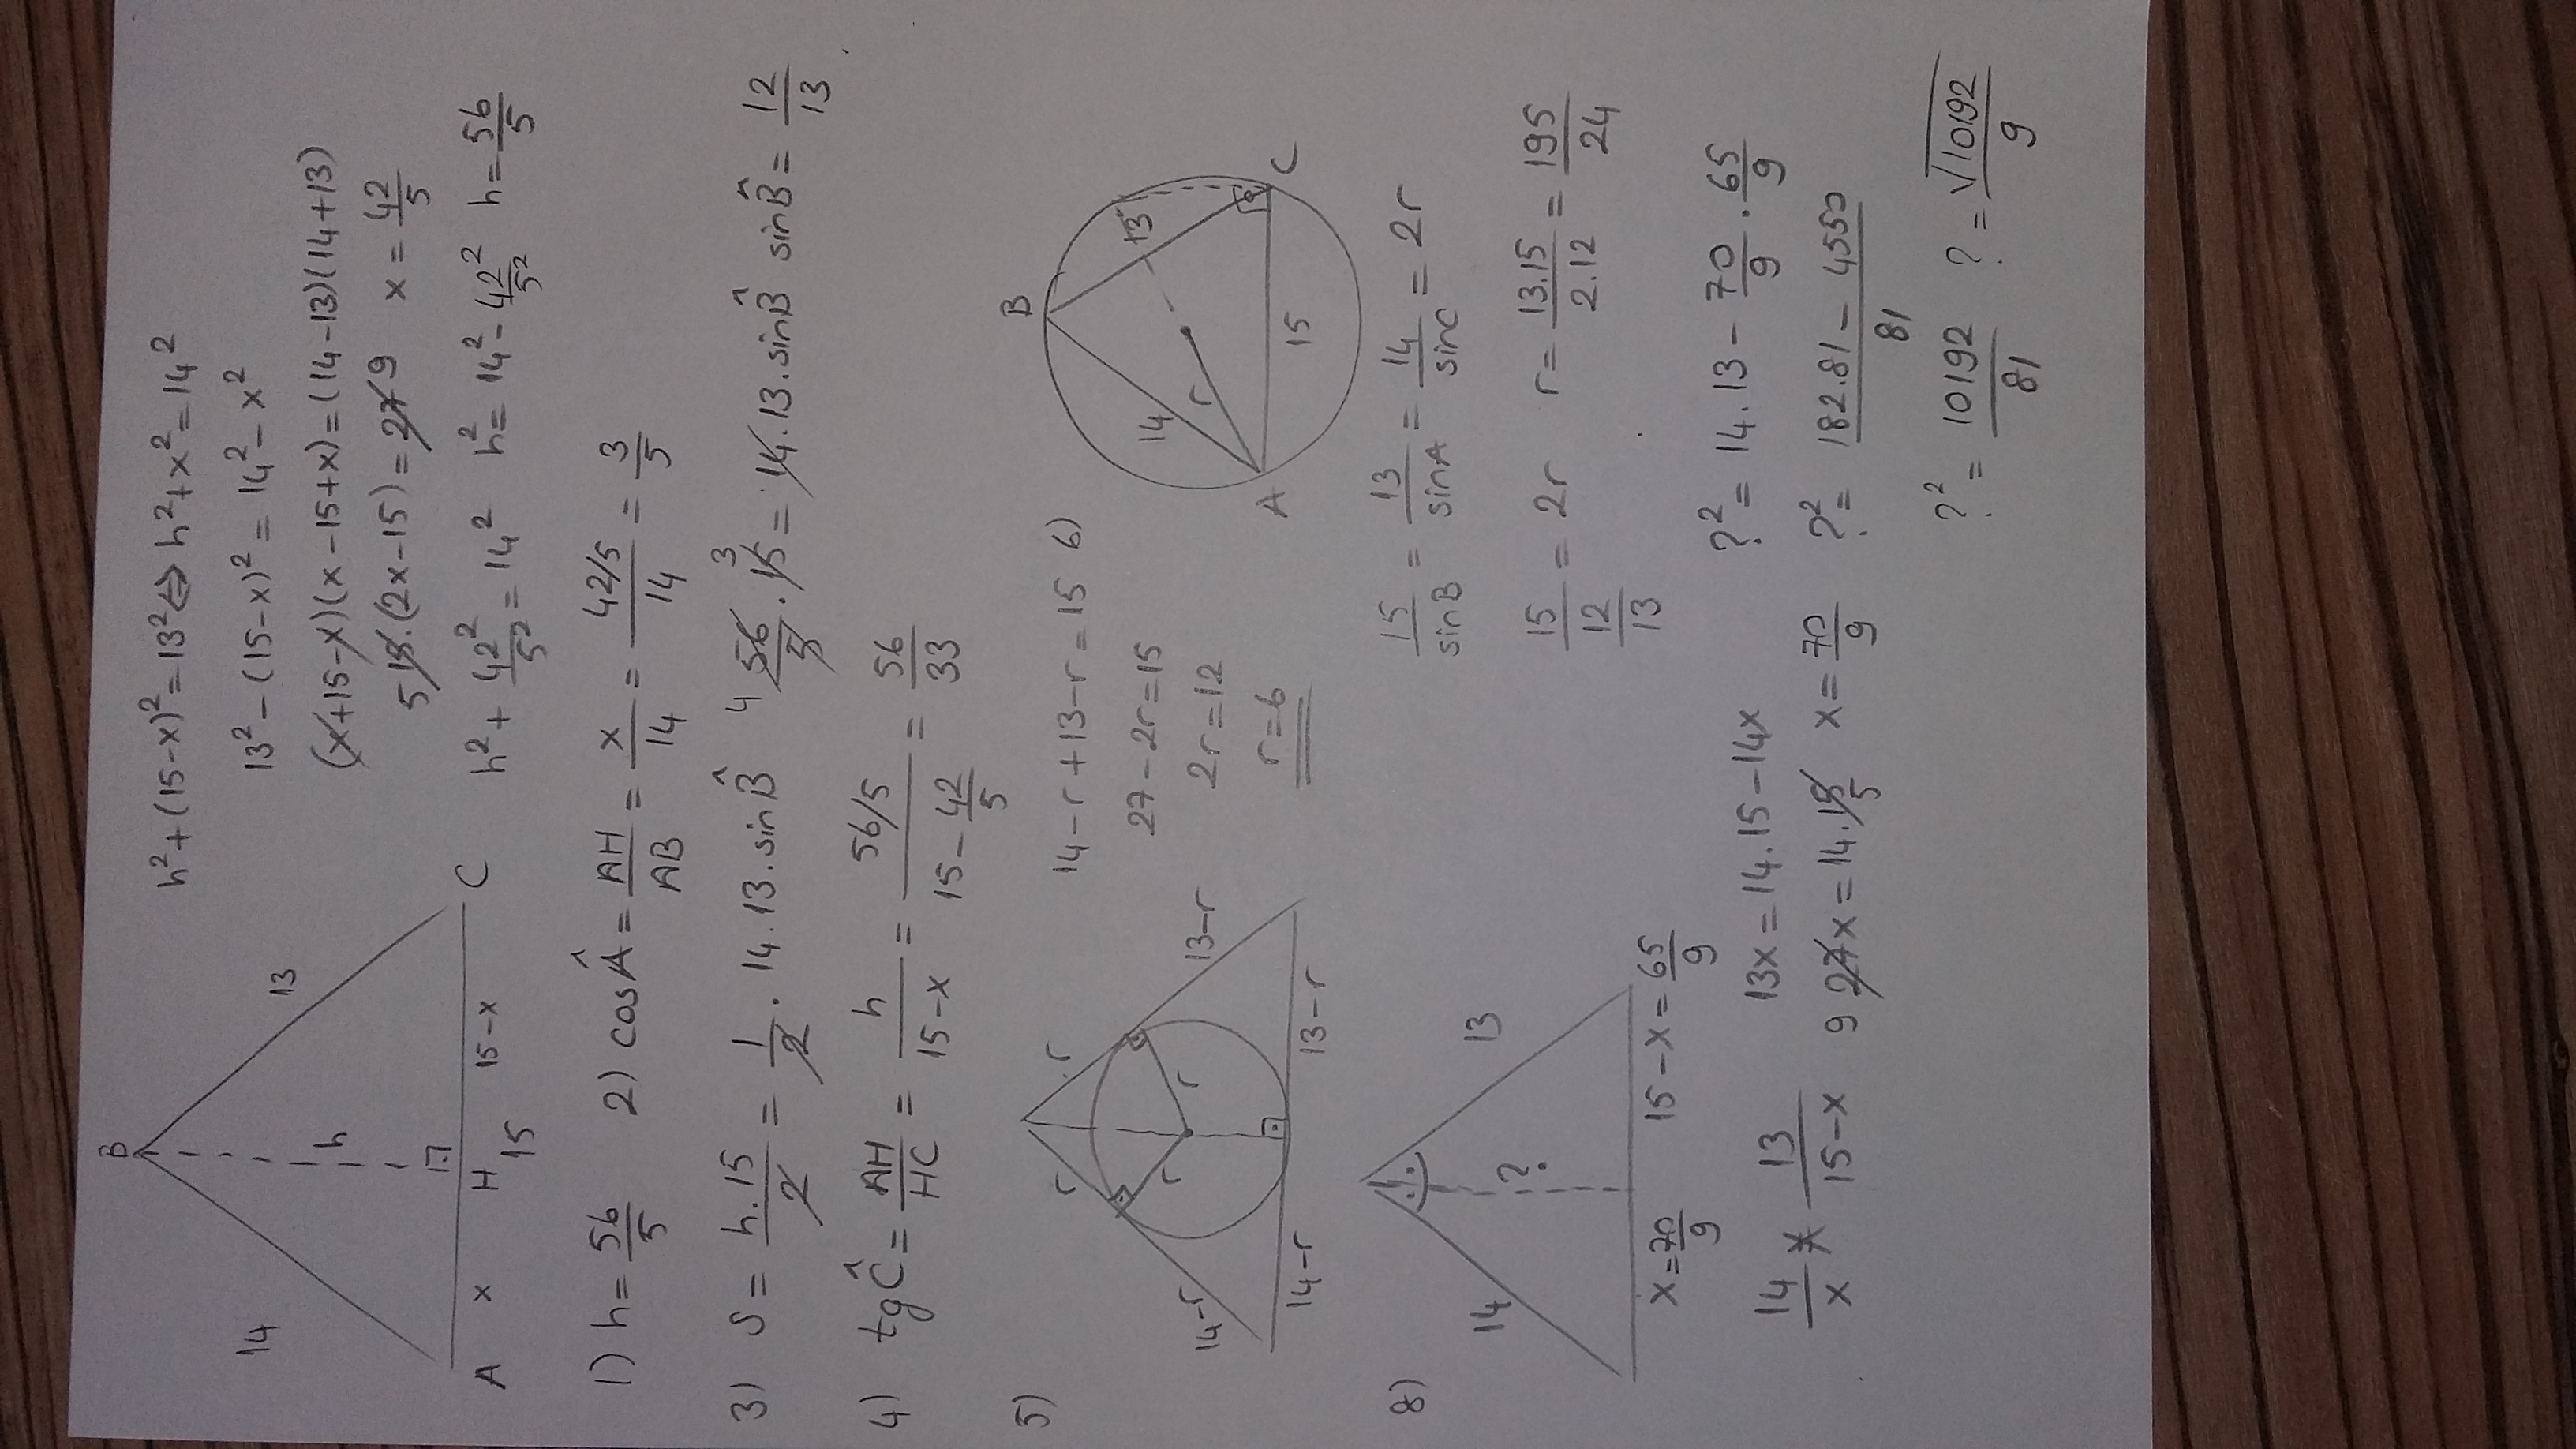 B
14 h 13
A x H 15-x C
15
h²+(15-x)²=13² ⇔ h²+x²=14²
13²-(15-x)²=14²-x²
(x+15-x)(x-15+x)=(14-13)(14+13)
5 15.(2x-15)=27 9 x=42/5
h²+42²/5²=14² h²=14²-42²/5² h=56/5
1) h=56/5 2) cosÂ=AH/AB=x/14=(42/5)/14=3/5
3) S=h.15/2=1/2.14.13.sinB̂ 4 56/5.15 3=14.13.sinB̂ sinB̂=12/13
4) tgĈ=AH/HC=h/(15-x)=(56/5)/(15-42/5)=56/33
5) 14-r+13-r=15
27-2r=15
2r=12
r=6
r r
r r
14-r 13-r
14-r 13-r
6) B
14 13
r
A 15 C
15/sinB=13/sinA=14/sinC=2r
15/(12/13)=2r r=13.15/2.12=195/24
8)
14 ? 13
x=70/9 15-x=65/9
14/x 13/15-x 13x=14.15-14x
9 27x=14.15 5 x=70/9
?²=14.13-70/9.65/9
?²=(182.81-4550)/81
?²=10192/81 ?=√10192/9